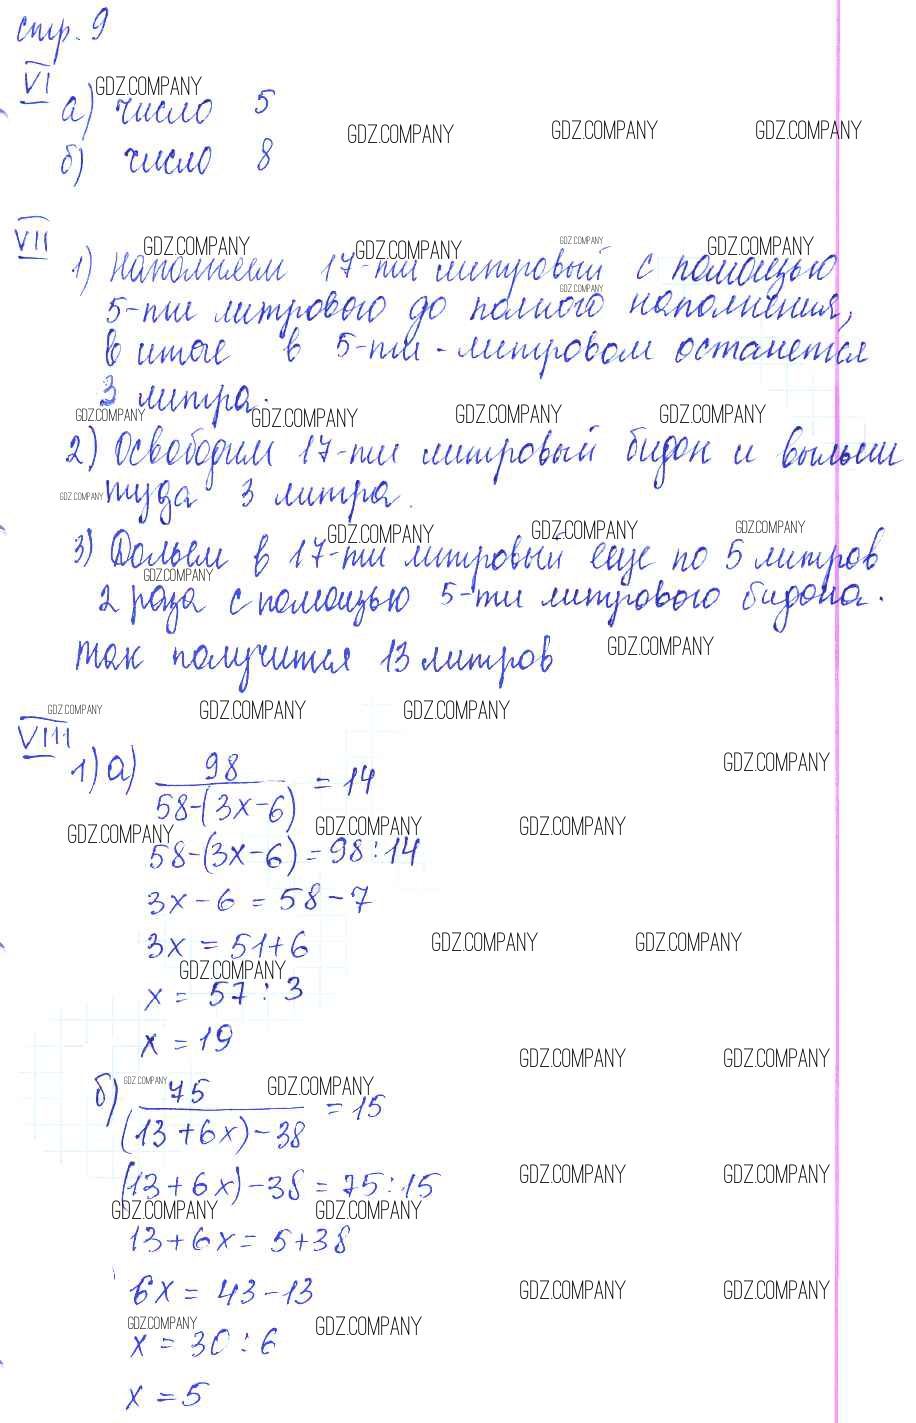 стр. 9
VI
GDZ.COMPANY
а) число 5
GDZ.COMPANY GDZ.COMPANY GDZ.COMPANY
б) число 8
VII
GDZ.COMPANY GDZ.COMPANY GDZ.COMPANY GDZ.COMPANY
1) Наполняем 17-ти литровый с помощью
GDZ.COMPANY
5-ти литрового до полного наполнения,
в итоге в 5-ти-литровом останется
3 литра.
GDZ.COMPANY GDZ.COMPANY GDZ.COMPANY GDZ.COMPANY
2) Освободим 17-ти литровый бидон и выльем
GDZ.COMPANY туда 3 литра.
GDZ.COMPANY GDZ.COMPANY GDZ.COMPANY
3) Дольем в 17-ти литровый еще по 5 литров
GDZ.COMPANY
2 раза с помощью 5-ти литрового бидона.
так получится 13 литров GDZ.COMPANY
GDZ.COMPANY GDZ.COMPANY GDZ.COMPANY
VIII
1) а) 98 / 58-(3x-6) = 14 GDZ.COMPANY
GDZ.COMPANY GDZ.COMPANY GDZ.COMPANY
58-(3x-6) = 98:14
3x-6 = 58-7
3x = 51+6 GDZ.COMPANY GDZ.COMPANY
GDZ.COMPANY
x = 57:3
x = 19
GDZ.COMPANY GDZ.COMPANY
GDZ.COMPANY GDZ.COMPANY
б) 75 / (13+6x)-38 = 15
(13+6x)-38 = 75:15 GDZ.COMPANY GDZ.COMPANY
GDZ.COMPANY GDZ.COMPANY
13+6x = 5+38
6x = 43-13 GDZ.COMPANY GDZ.COMPANY
GDZ.COMPANY GDZ.COMPANY
x = 30:6
x = 5